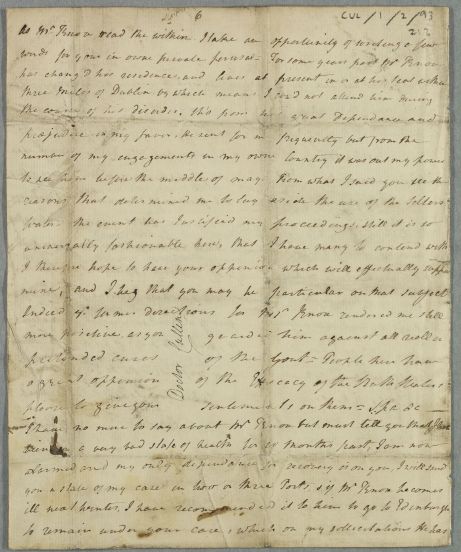 6
CUL/1/2/93
2:2
As Mr. Vernon read the within I take an opportunity of writing a few
words for your own private perusal. For some years past Mr Vernon
has chang'd his residence, and lives at present in or at his seat within
three miles of Dublin by which means I could not attend him during
the course of his disorder, tho from his great dependance and
prejudice in my favor, he sent for me frequently but from the
number of my engagements in my own Country it was out my power
to see him before the middle of may. From what I said you see the
reasons that determined me to lay aside the use of the
water the event has Justified my proceedings, still it is so
universally fashionable here, that I have many to contend with
I therefore hope to have your oppenion which will effectually support
mine, and I beg that you may be particular on that subject
Indeed yr. former directions for Mr Vernon rendered me still
more positive, as you guarded him against all
pretended cures of the Gout = People here have
a great oppenion of the Efficacy of the Bath Waters =
please to give your sentiments on them = Spa &c
Doctor Cullen
I have no more to say about Mr Vernon but must tell you that I have
been in a very bad state of health for months past, I am now
alarmed and my only dependance for recovery is on you, I will send
you a state of my case in two or three Posts, & if Mr Vernon becomes
ill next winter, I have recommended it to him to go to Edinburgh
to remain under your care, which on my sollicitations He has